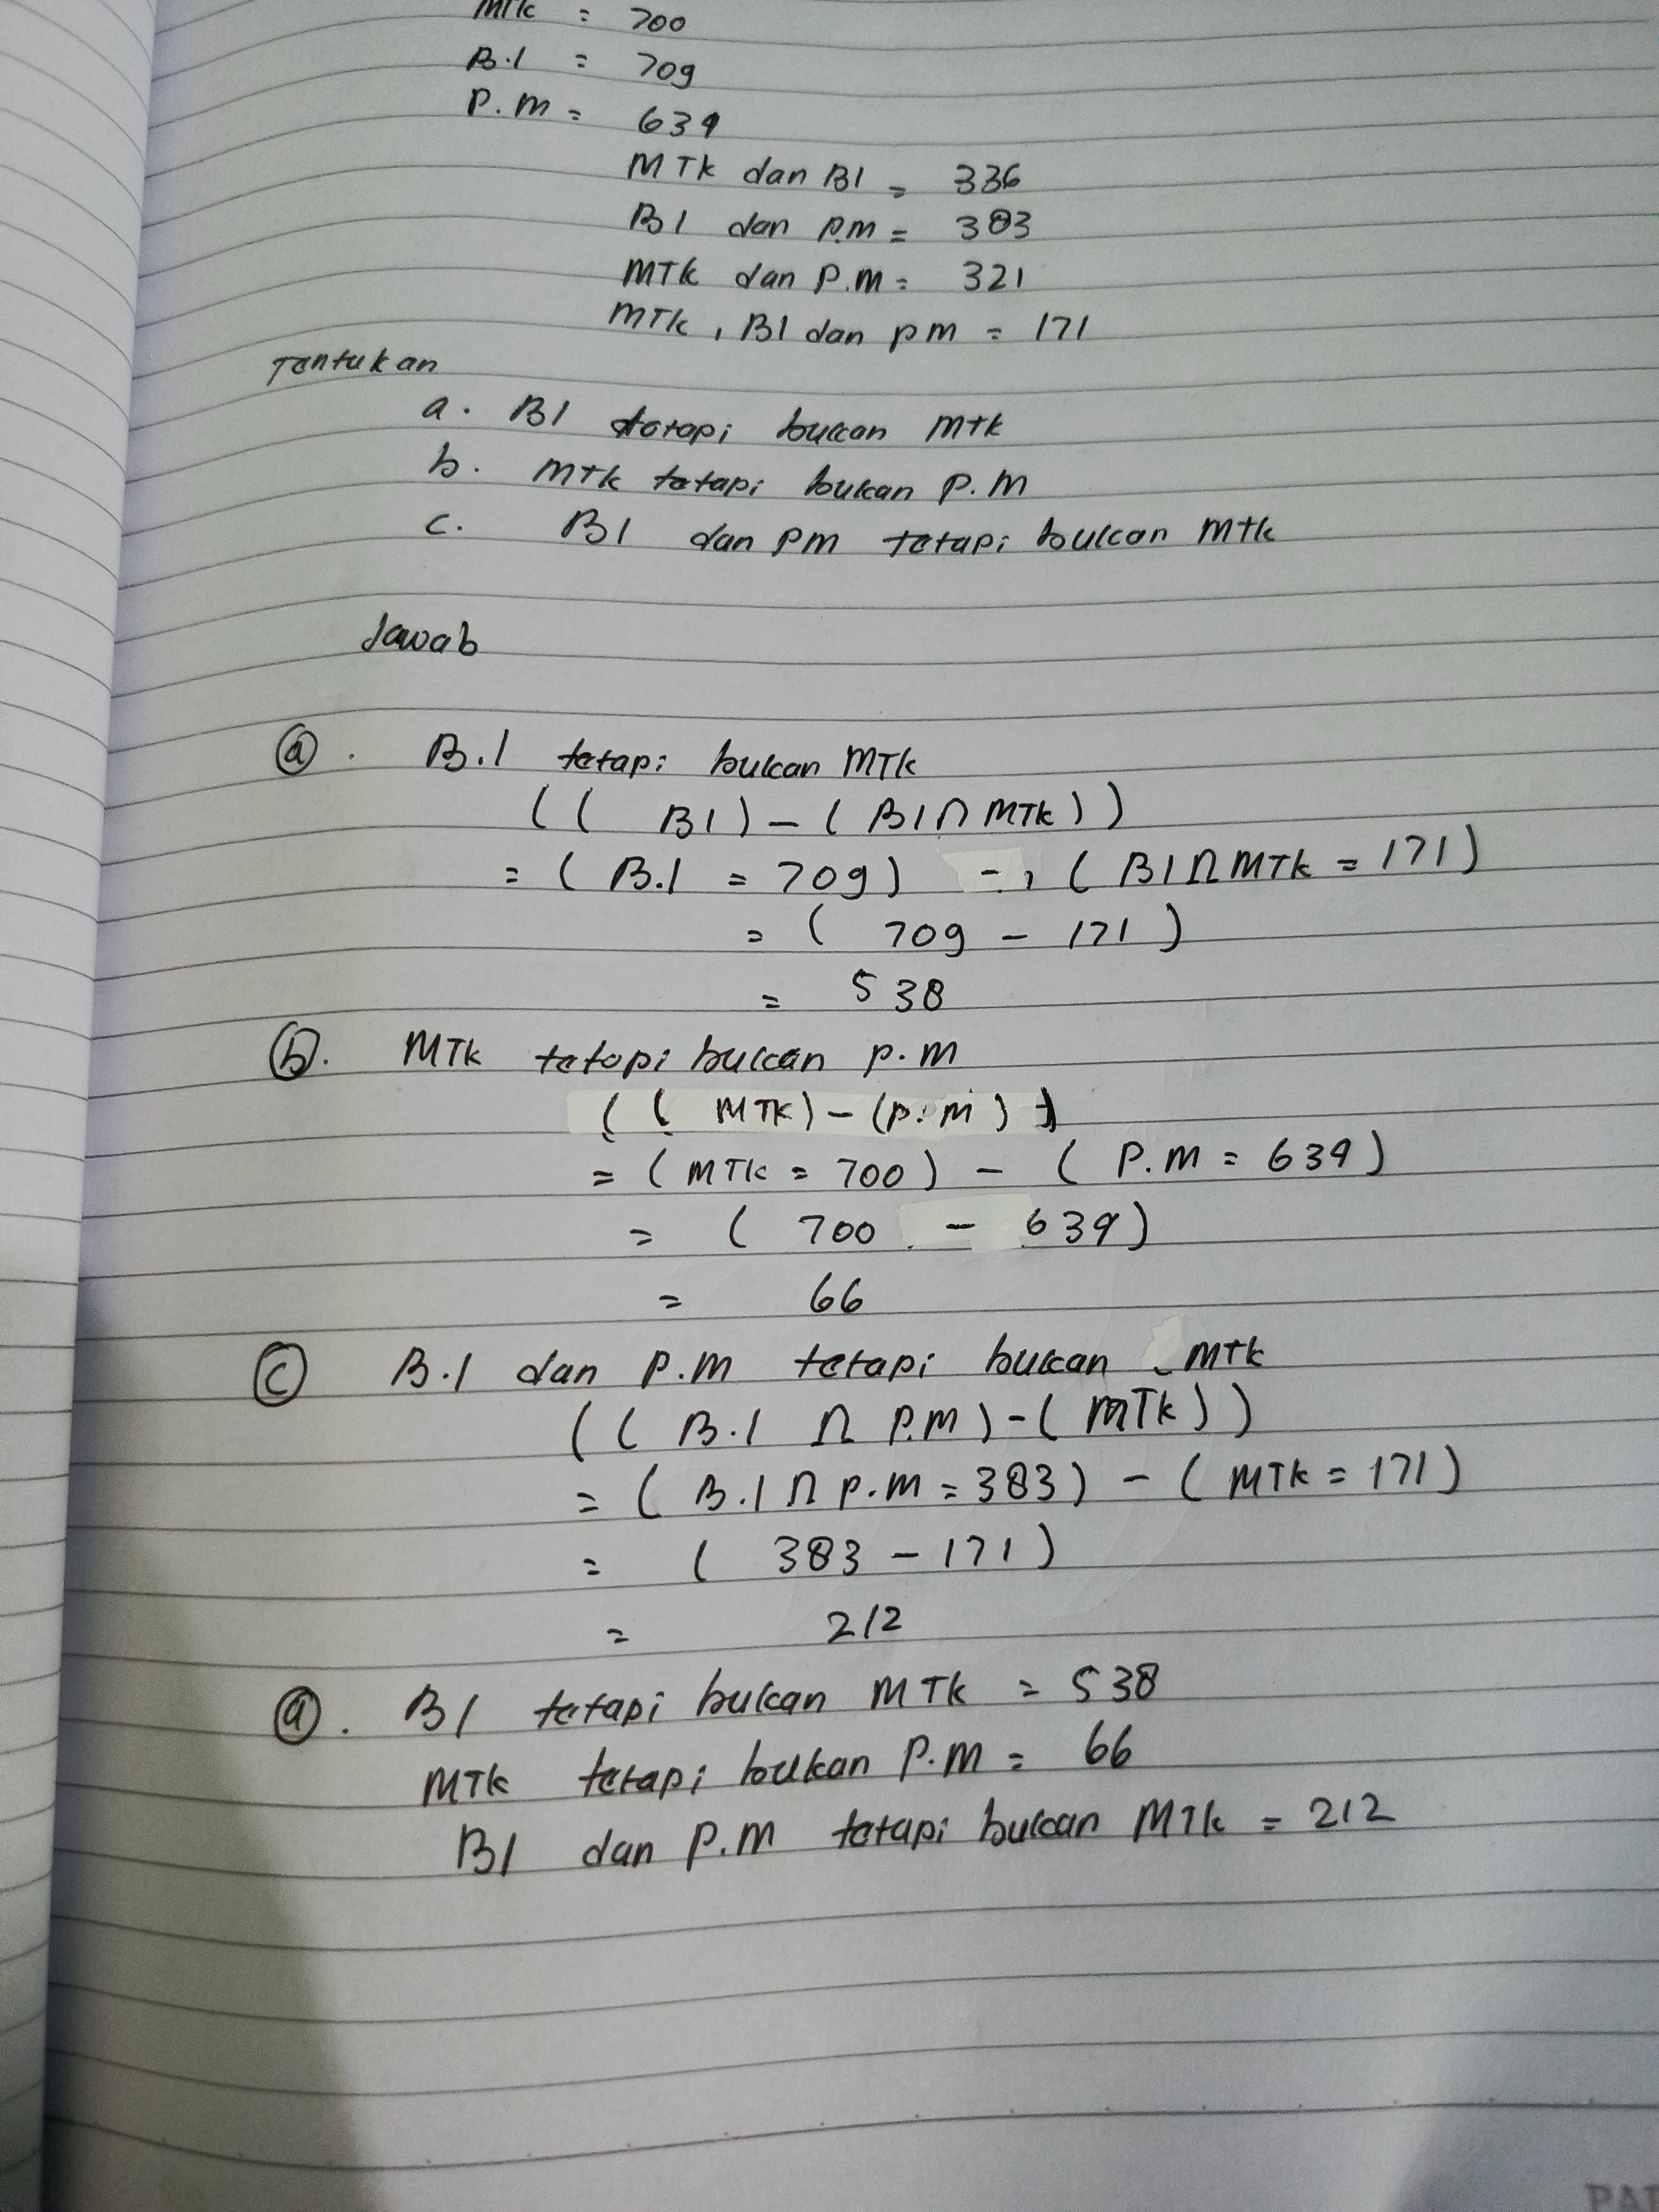 MTk = 700
B.I = 709
P.M = 634
MTk dan BI = 336
BI dan P.M = 383
MTk dan P.M = 321
MTk, BI dan PM = 171
Tentukan
a. BI tetapi bukan Mtk
b. MTk tetapi bukan P.M
c. BI dan PM tetapi bukan Mtk
Jawab
(a). B.I tetapi bukan MTk
(( BI) - ( BI ∩ MTk ))
= ( B.I = 709) - , ( BI ∩ MTk = 171)
= ( 709 - 171 )
= 538
(b). MTk tetapi bukan P.M
(( MTk) - (P.M ))
= ( MTk = 700 ) - ( P.M = 634 )
= ( 700 - 634 )
= 66
(c) B.I dan P.M tetapi bukan MTk
(( B.I ∩ P.M ) - ( MTk ))
= ( B.I ∩ P.M = 383 ) - ( MTk = 171 )
= ( 383 - 171 )
= 212
(a). BI tetapi bukan MTk = 538
MTk tetapi bukan P.M = 66
BI dan P.M tetapi bukan MTk = 212